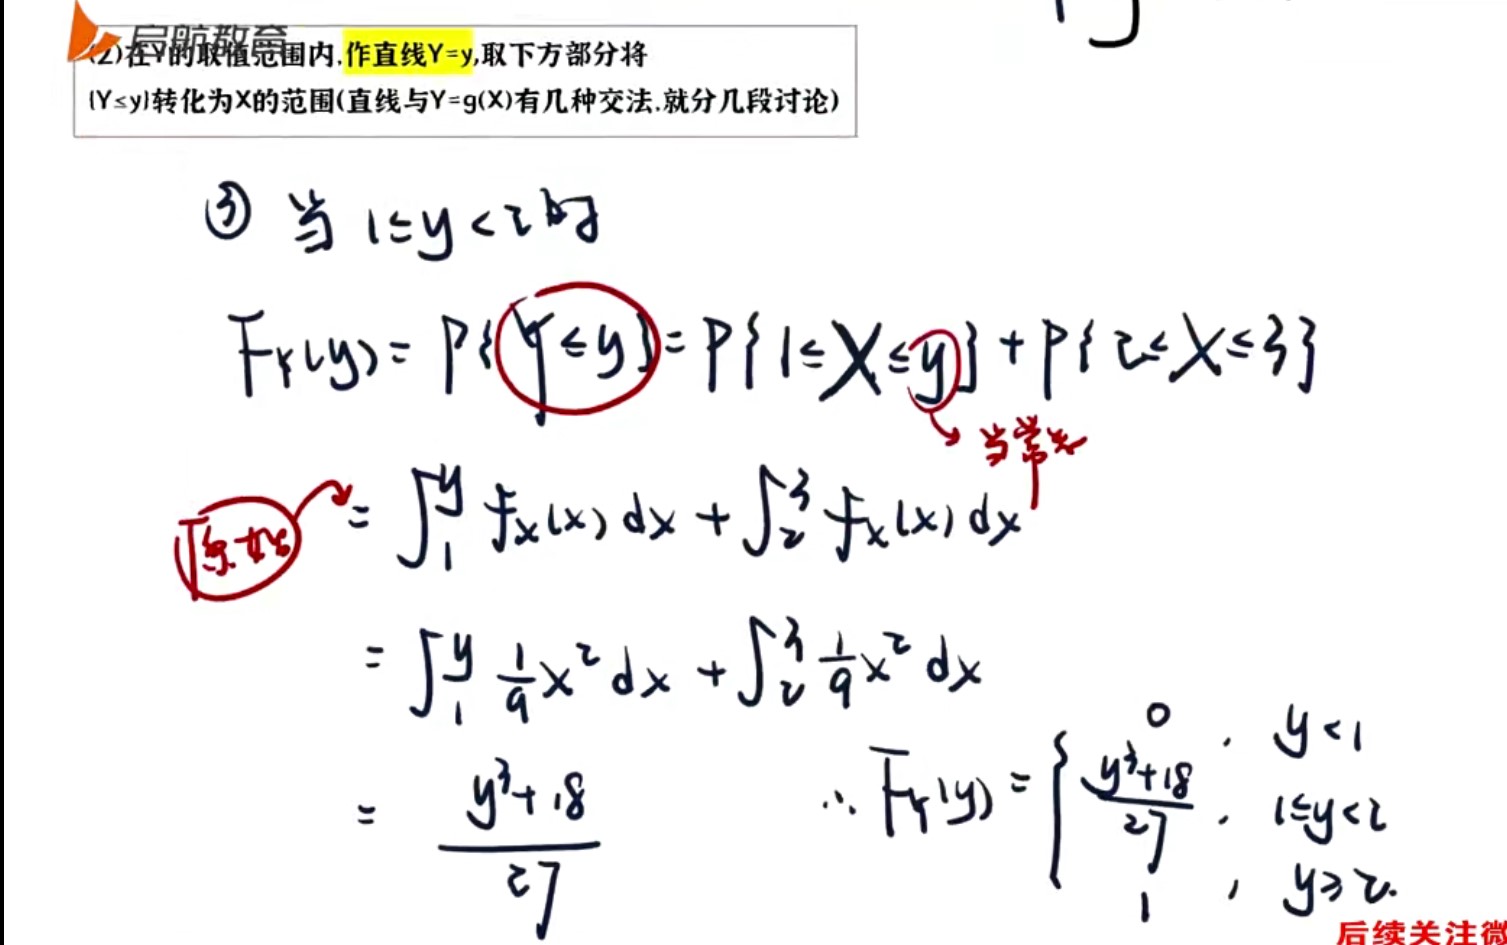 启航教育
(2)在Y的取值范围内,作直线Y=y,取下方部分将
{Y≤y}转化为X的范围(直线与Y=g(X)有几种交法,就分几段讨论)
③ 当 1≤y<2时
F_Y(y)= P{Y≤y}= P{1≤X≤y}+P{2≤X≤3}
当常数
原始
= ∫_1^y f_X(x)dx + ∫_2^3 f_X(x)dx
= ∫_1^y 1/9 x² dx + ∫_2^3 1/9 x² dx
= (y³+18)/27
∴ F_Y(y) = { 0 , y<1
(y³+18)/27 , 1≤y<2
1 , y≥2.
后续关注微